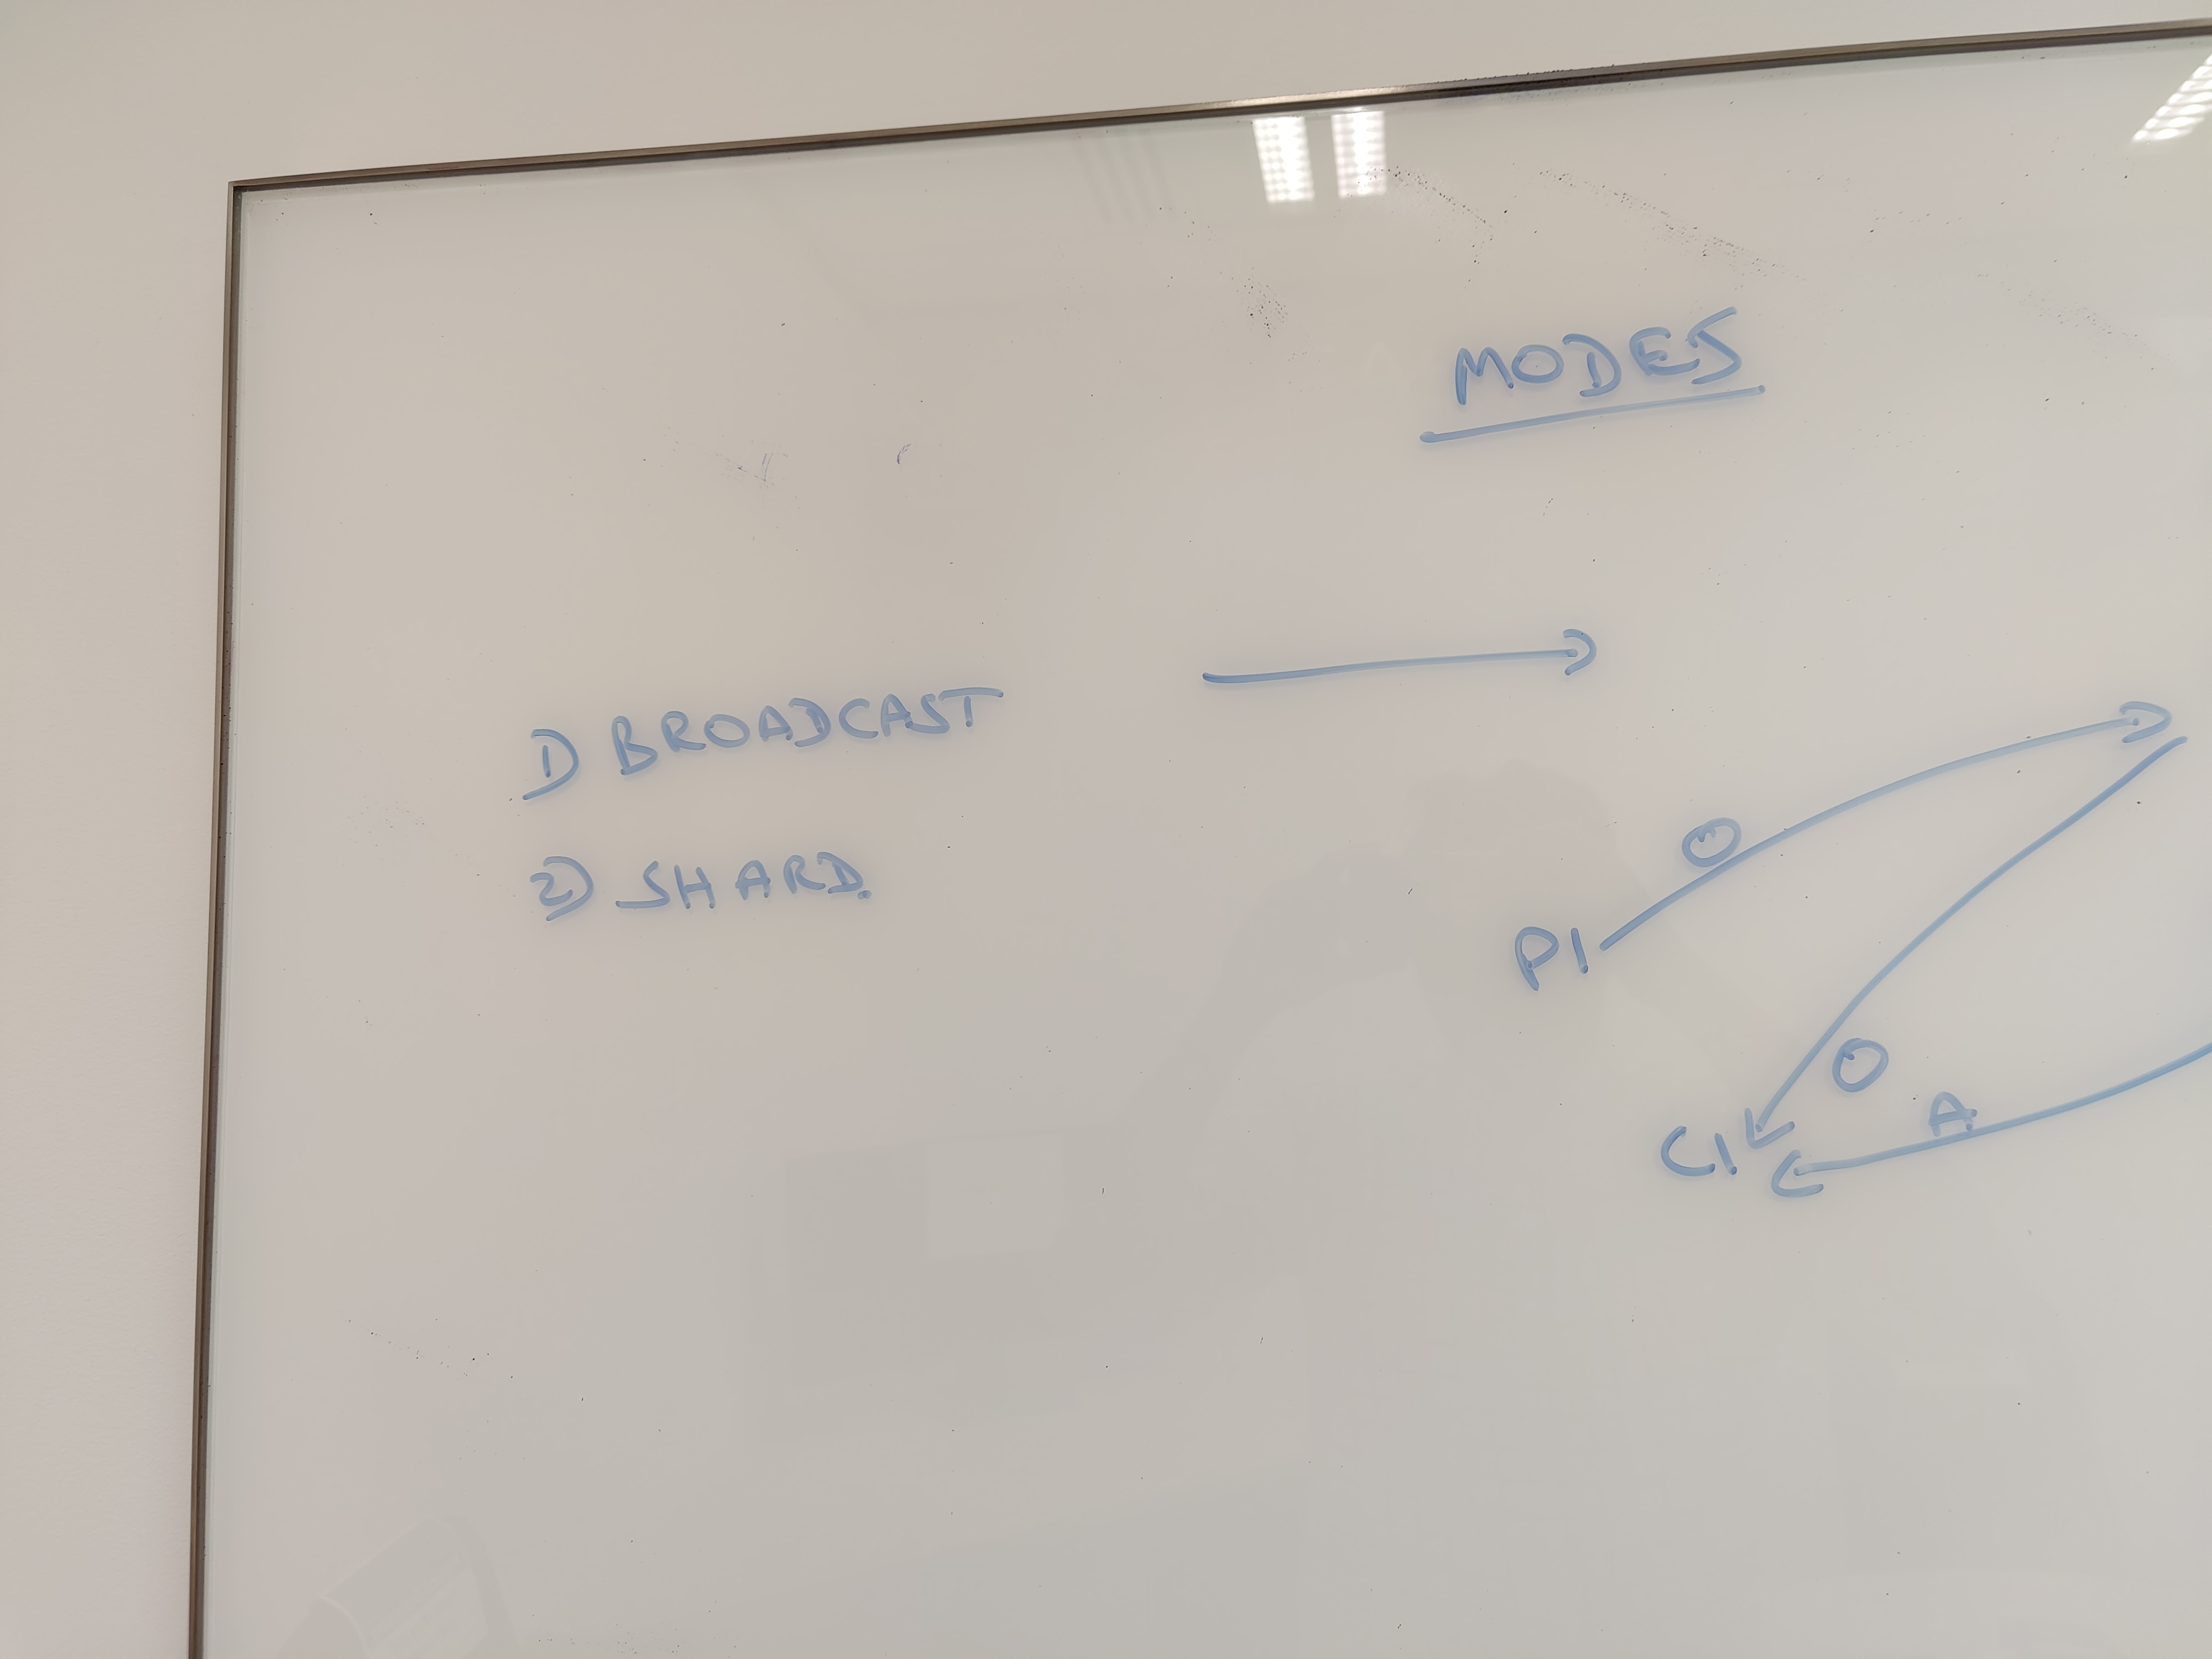 MODES
1) BROADCAST
2) SHARD
O
P1
O
A
C1